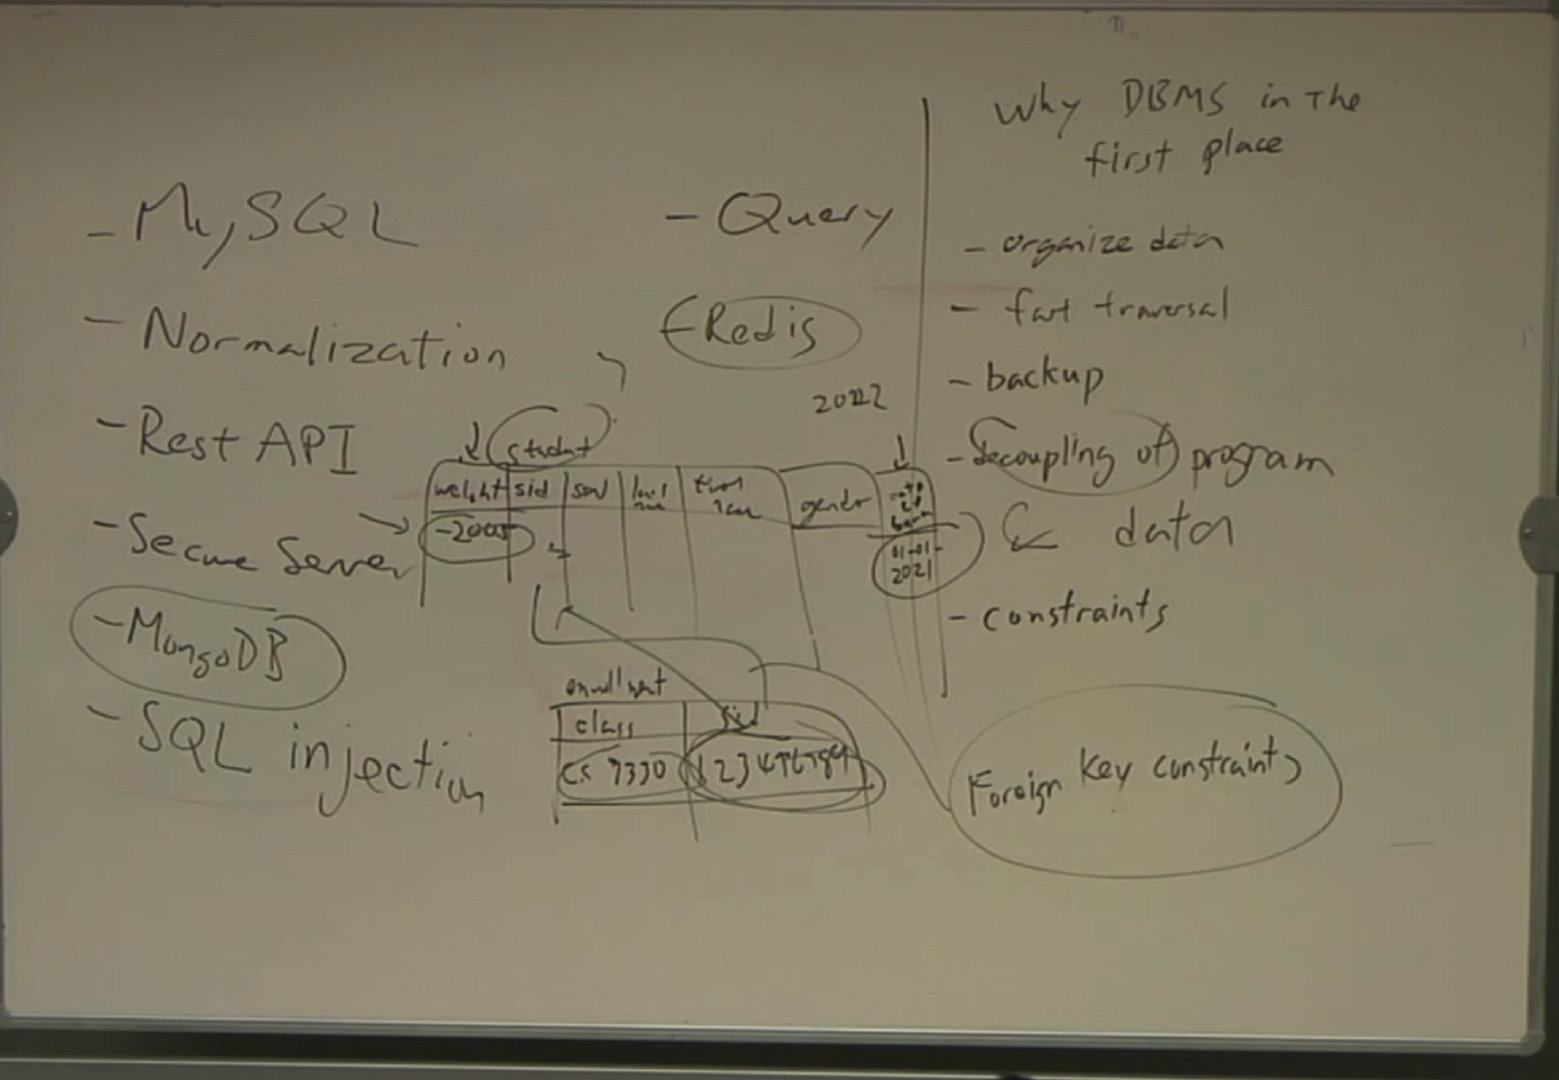 - MySQL
- Normalization
- Rest API
- Secure Server
- MongoDB
- SQL injection
- Query
- Redis
2022
student
weight sid ssn last first gender date of birth
-2005
01-01-
2021
enrollment
class sid
CS 7330 123456789
Why DBMS in the
first place
- organize data
- fast traversal
- backup
- Decoupling of program
& data
- constraints
Foreign Key constraints